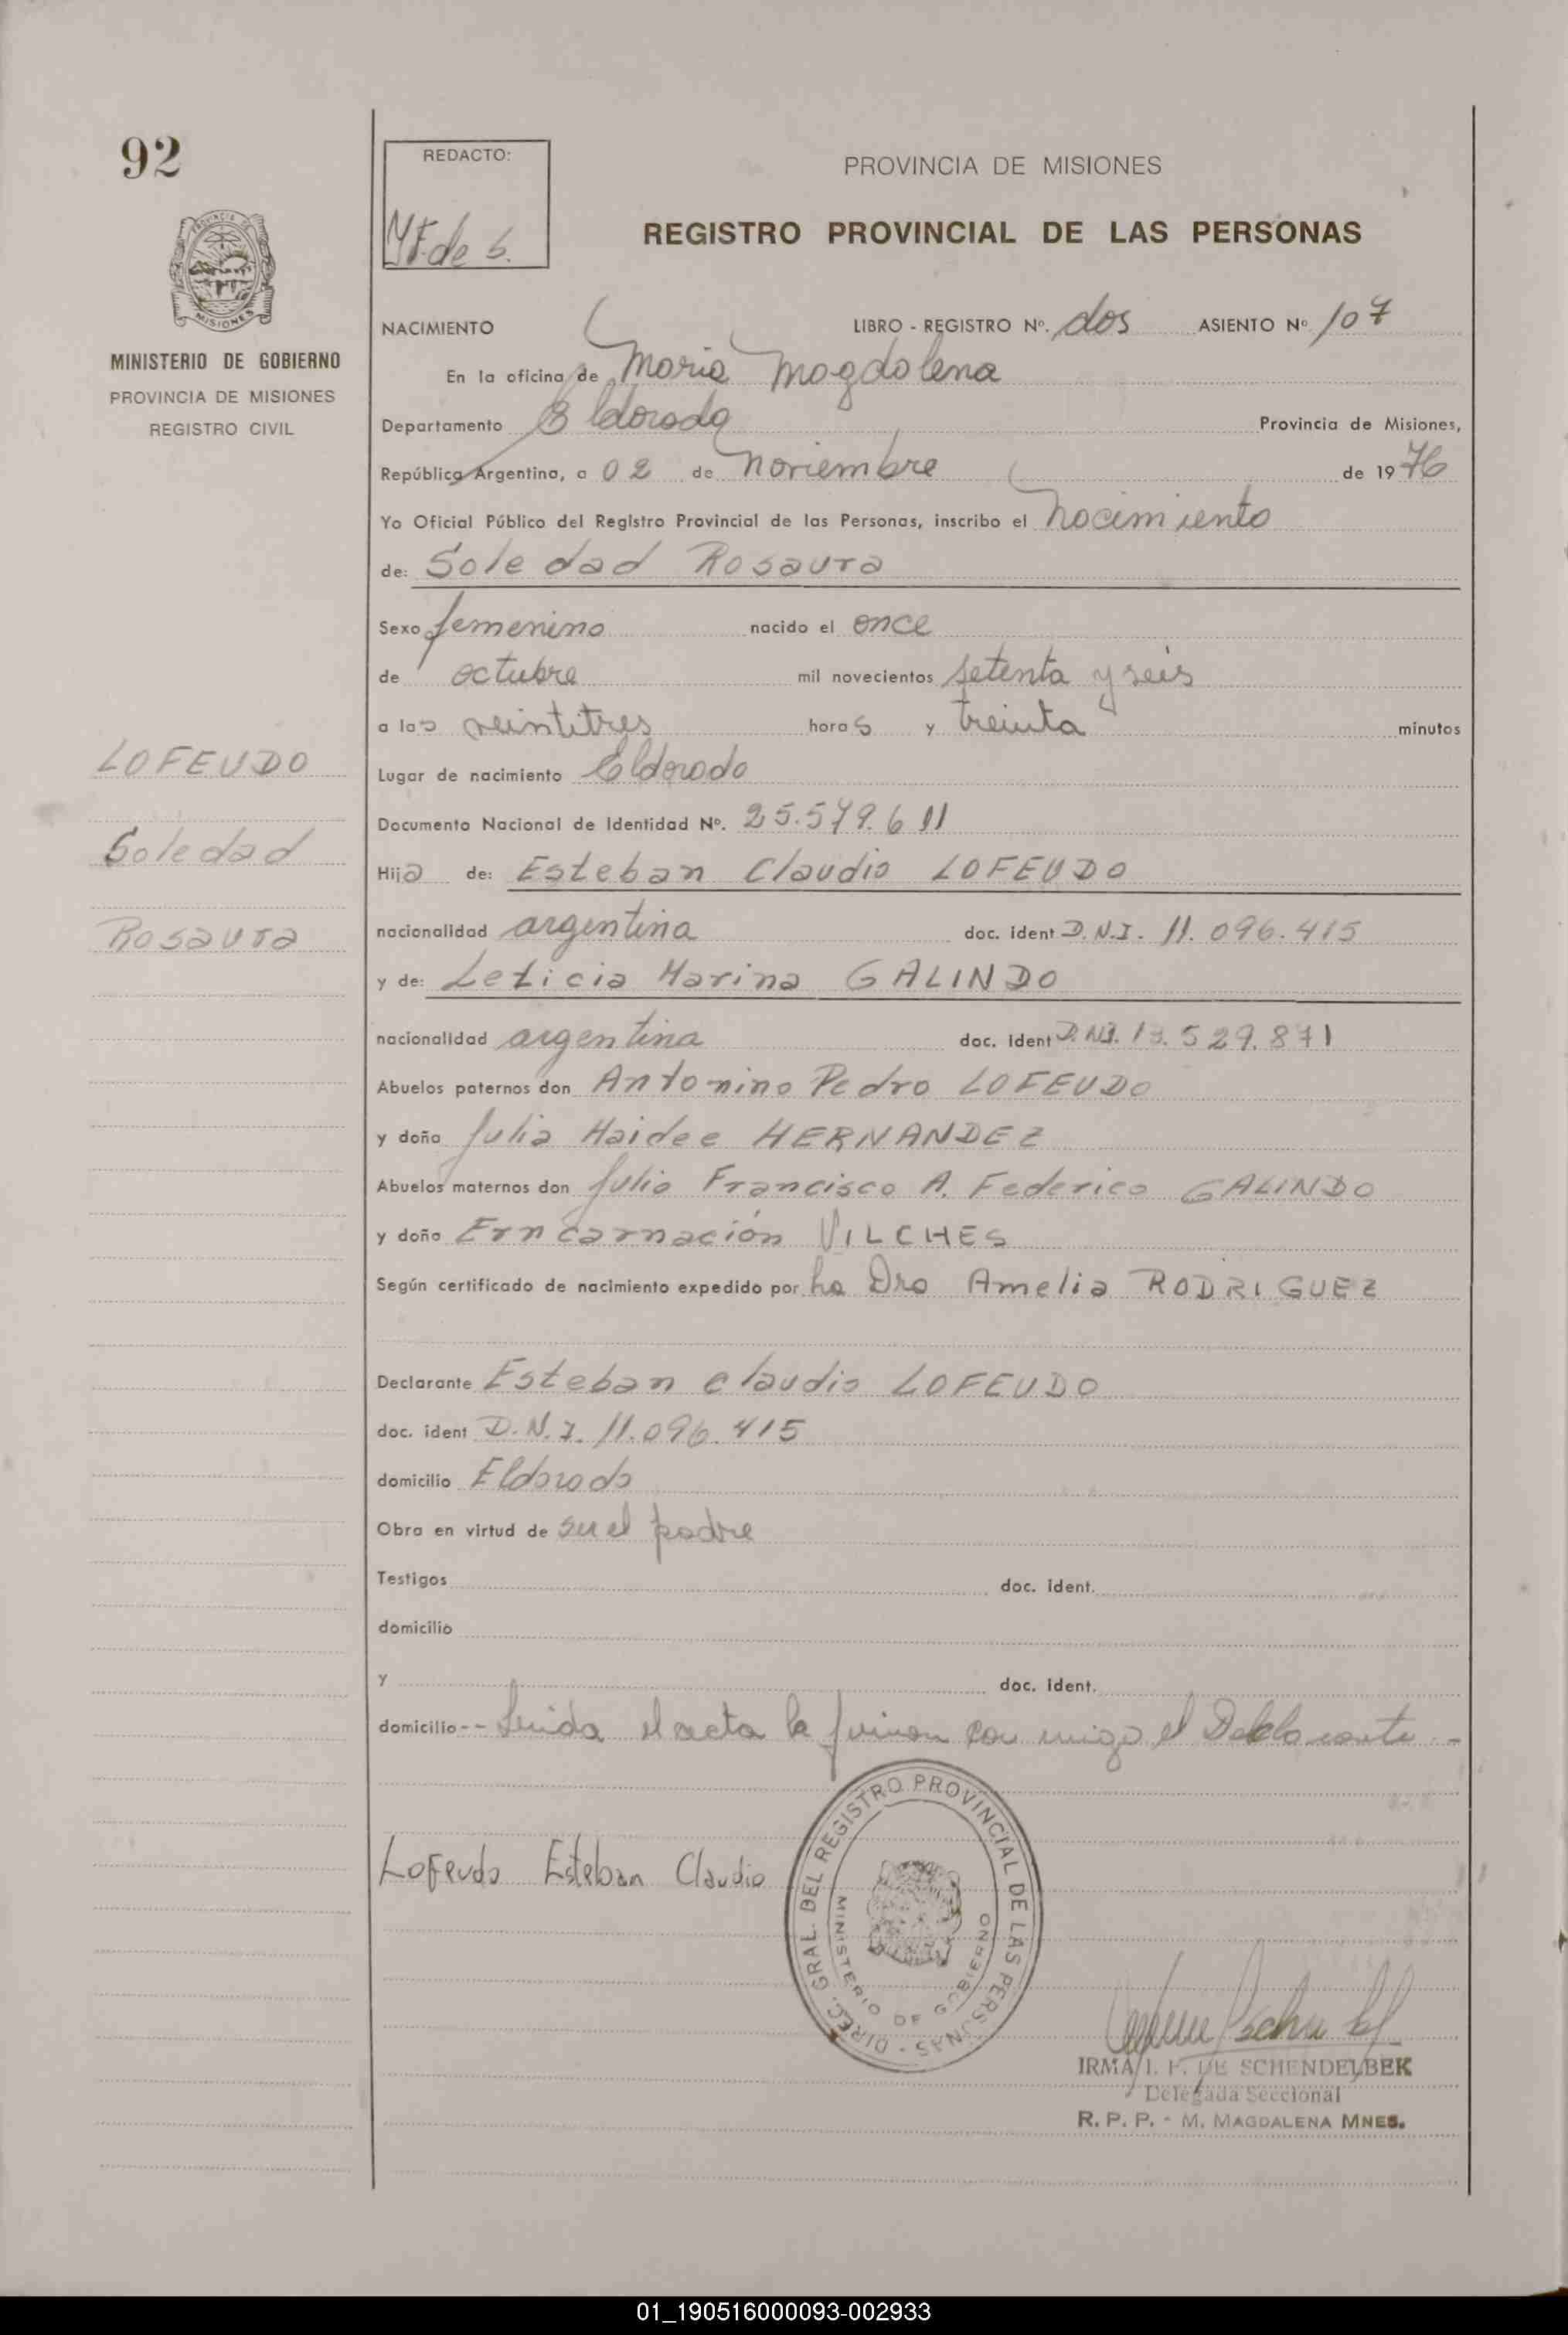 92
PROVINCIA DE
MISIONES
MINISTERIO DE GOBIERNO
PROVINCIA DE MISIONES
REGISTRO CIVIL
LOFEUDO
Soledad
Rosaura
REDACTO:
PROVINCIA DE MISIONES
REGISTRO PROVINCIAL DE LAS PERSONAS
NACIMIENTO LIBRO - REGISTRO Nº. dos ASIENTO Nº 107
En la oficina de Maria Magdalena
Departamento Eldorado Provincia de Misiones,
República Argentina, a 02 de noviembre de 1976
Yo Oficial Público del Registro Provincial de las Personas, inscribo el nacimiento
de: Soledad Rosaura
Sexo femenino nacido el once
de octubre mil novecientos setenta y seis
a las veintitres horas y treinta minutos
Lugar de nacimiento Eldorado
Documento Nacional de Identidad Nº. 25.579.611
Hija de: Esteban Claudio LOFEUDO
nacionalidad argentina doc. ident D.N.I. 11.096.415
y de: Leticia Marina GALINDO
nacionalidad argentina doc. ident D.NI. 13.529.871
Abuelos paternos don Antonino Pedro LOFEUDO
y doña Julia Haidee HERNANDEZ
Abuelos maternos don Julio Francisco A. Federico GALINDO
y doña Erncarnación VILCHES
Según certificado de nacimiento expedido por La Dra Amelia RODRIGUEZ
Declarante Esteban Claudio LOFEUDO
doc. ident D.N.I. 11.096.415
domicilio Eldorado
Obra en virtud de ser el padre
Testigos doc. ident.
domicilio
y doc. ident.
domicilio -- Leida el acta la firman con migo el -
Lofeudo Esteban Claudio
DIREC. GRAL. DEL REGISTRO PROVINCIAL DE LAS PERSONAS -
MINISTERIO DE GOBIERNO
IRMA I. F. DE SCHENDELBEK
Delegada Seccional
R. P. P. - M. MAGDALENA MNES.
01_190516000093-002933